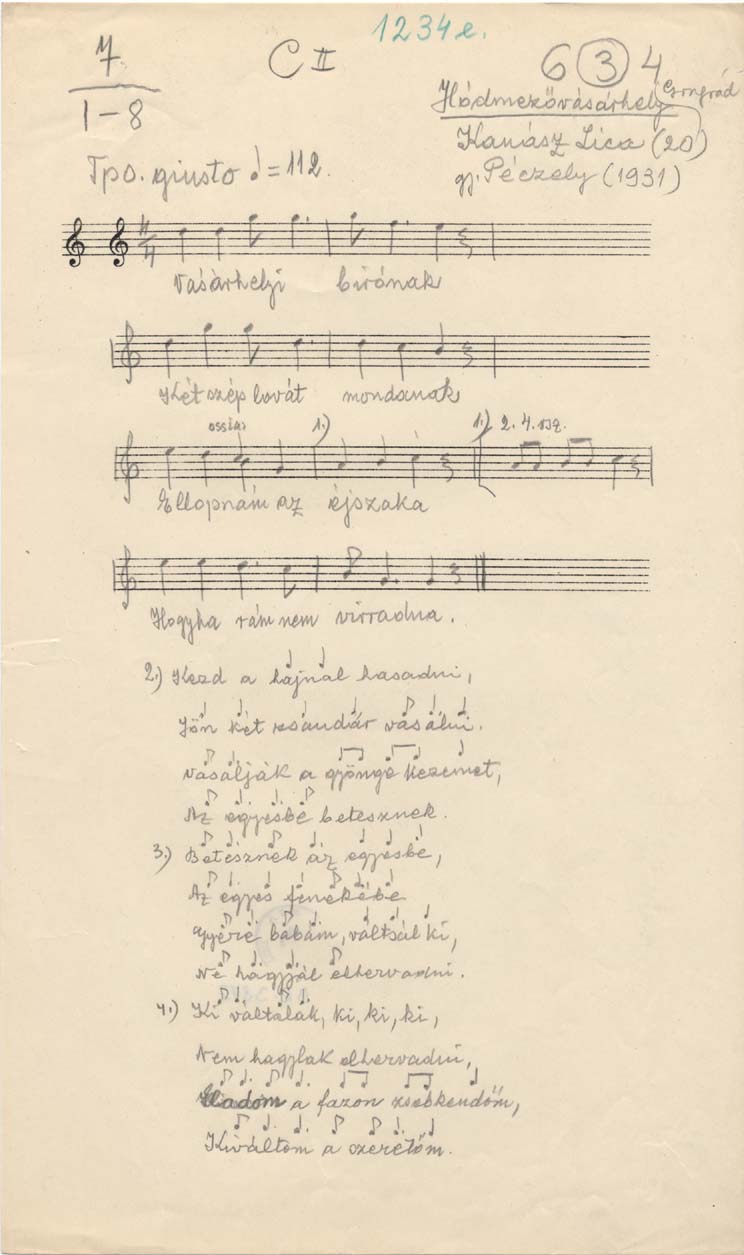 1234e.
7
1-8
C II
6 3 4
Hódmezővásárhely Csongrád
Kanász Lica (20)
gy. Péczely (1931)
Tpo. giusto ♩=112.
4/4
Vásárhelyi birónak
Két szép lovát mondának
ossia: 1.) 1.) 2. 4. vsz.
Ellopnám az éjszaka
Hogyha rám nem virradna.
2.) Kezd a hajnal hasadni,
Jön két zsandár vasálni.
Vasálják a gyönge kezemet,
Az egyesbe betesznek.
3.) Betesznek az egyesbe,
Az egyes fenekébe
Gyere babám, váltsál ki,
Ne hagyjál elhervadni.
4.) Ki váltalak, ki, ki, ki,
Nem hagylak elhervadni,
Eladom a fazon zsebkendőm,
Kiváltom a szeretőm.